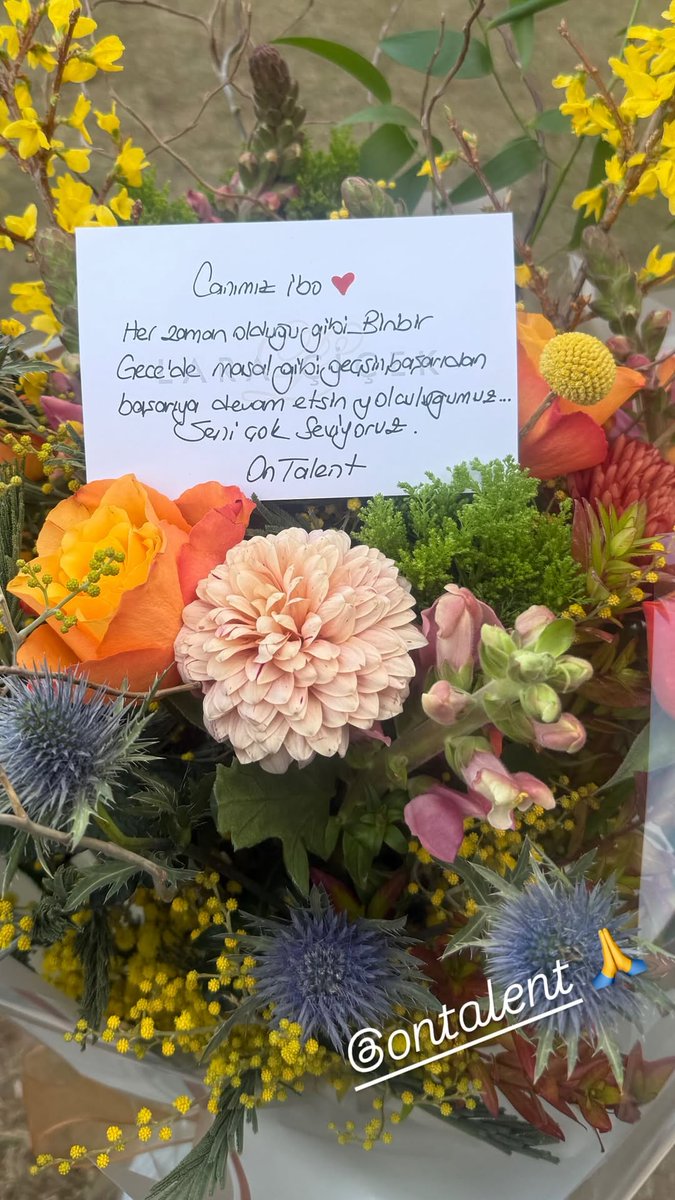 Canımız ibo ❤️
Her zaman olduğu gibi Binbir
Gece'de masal gibi geçsin, başarıdan
başarıya devam etsin yolculuğumuz...
Seni çok seviyoruz.
OnTalent
LARA ÇİÇEK
@ontalent 🙏